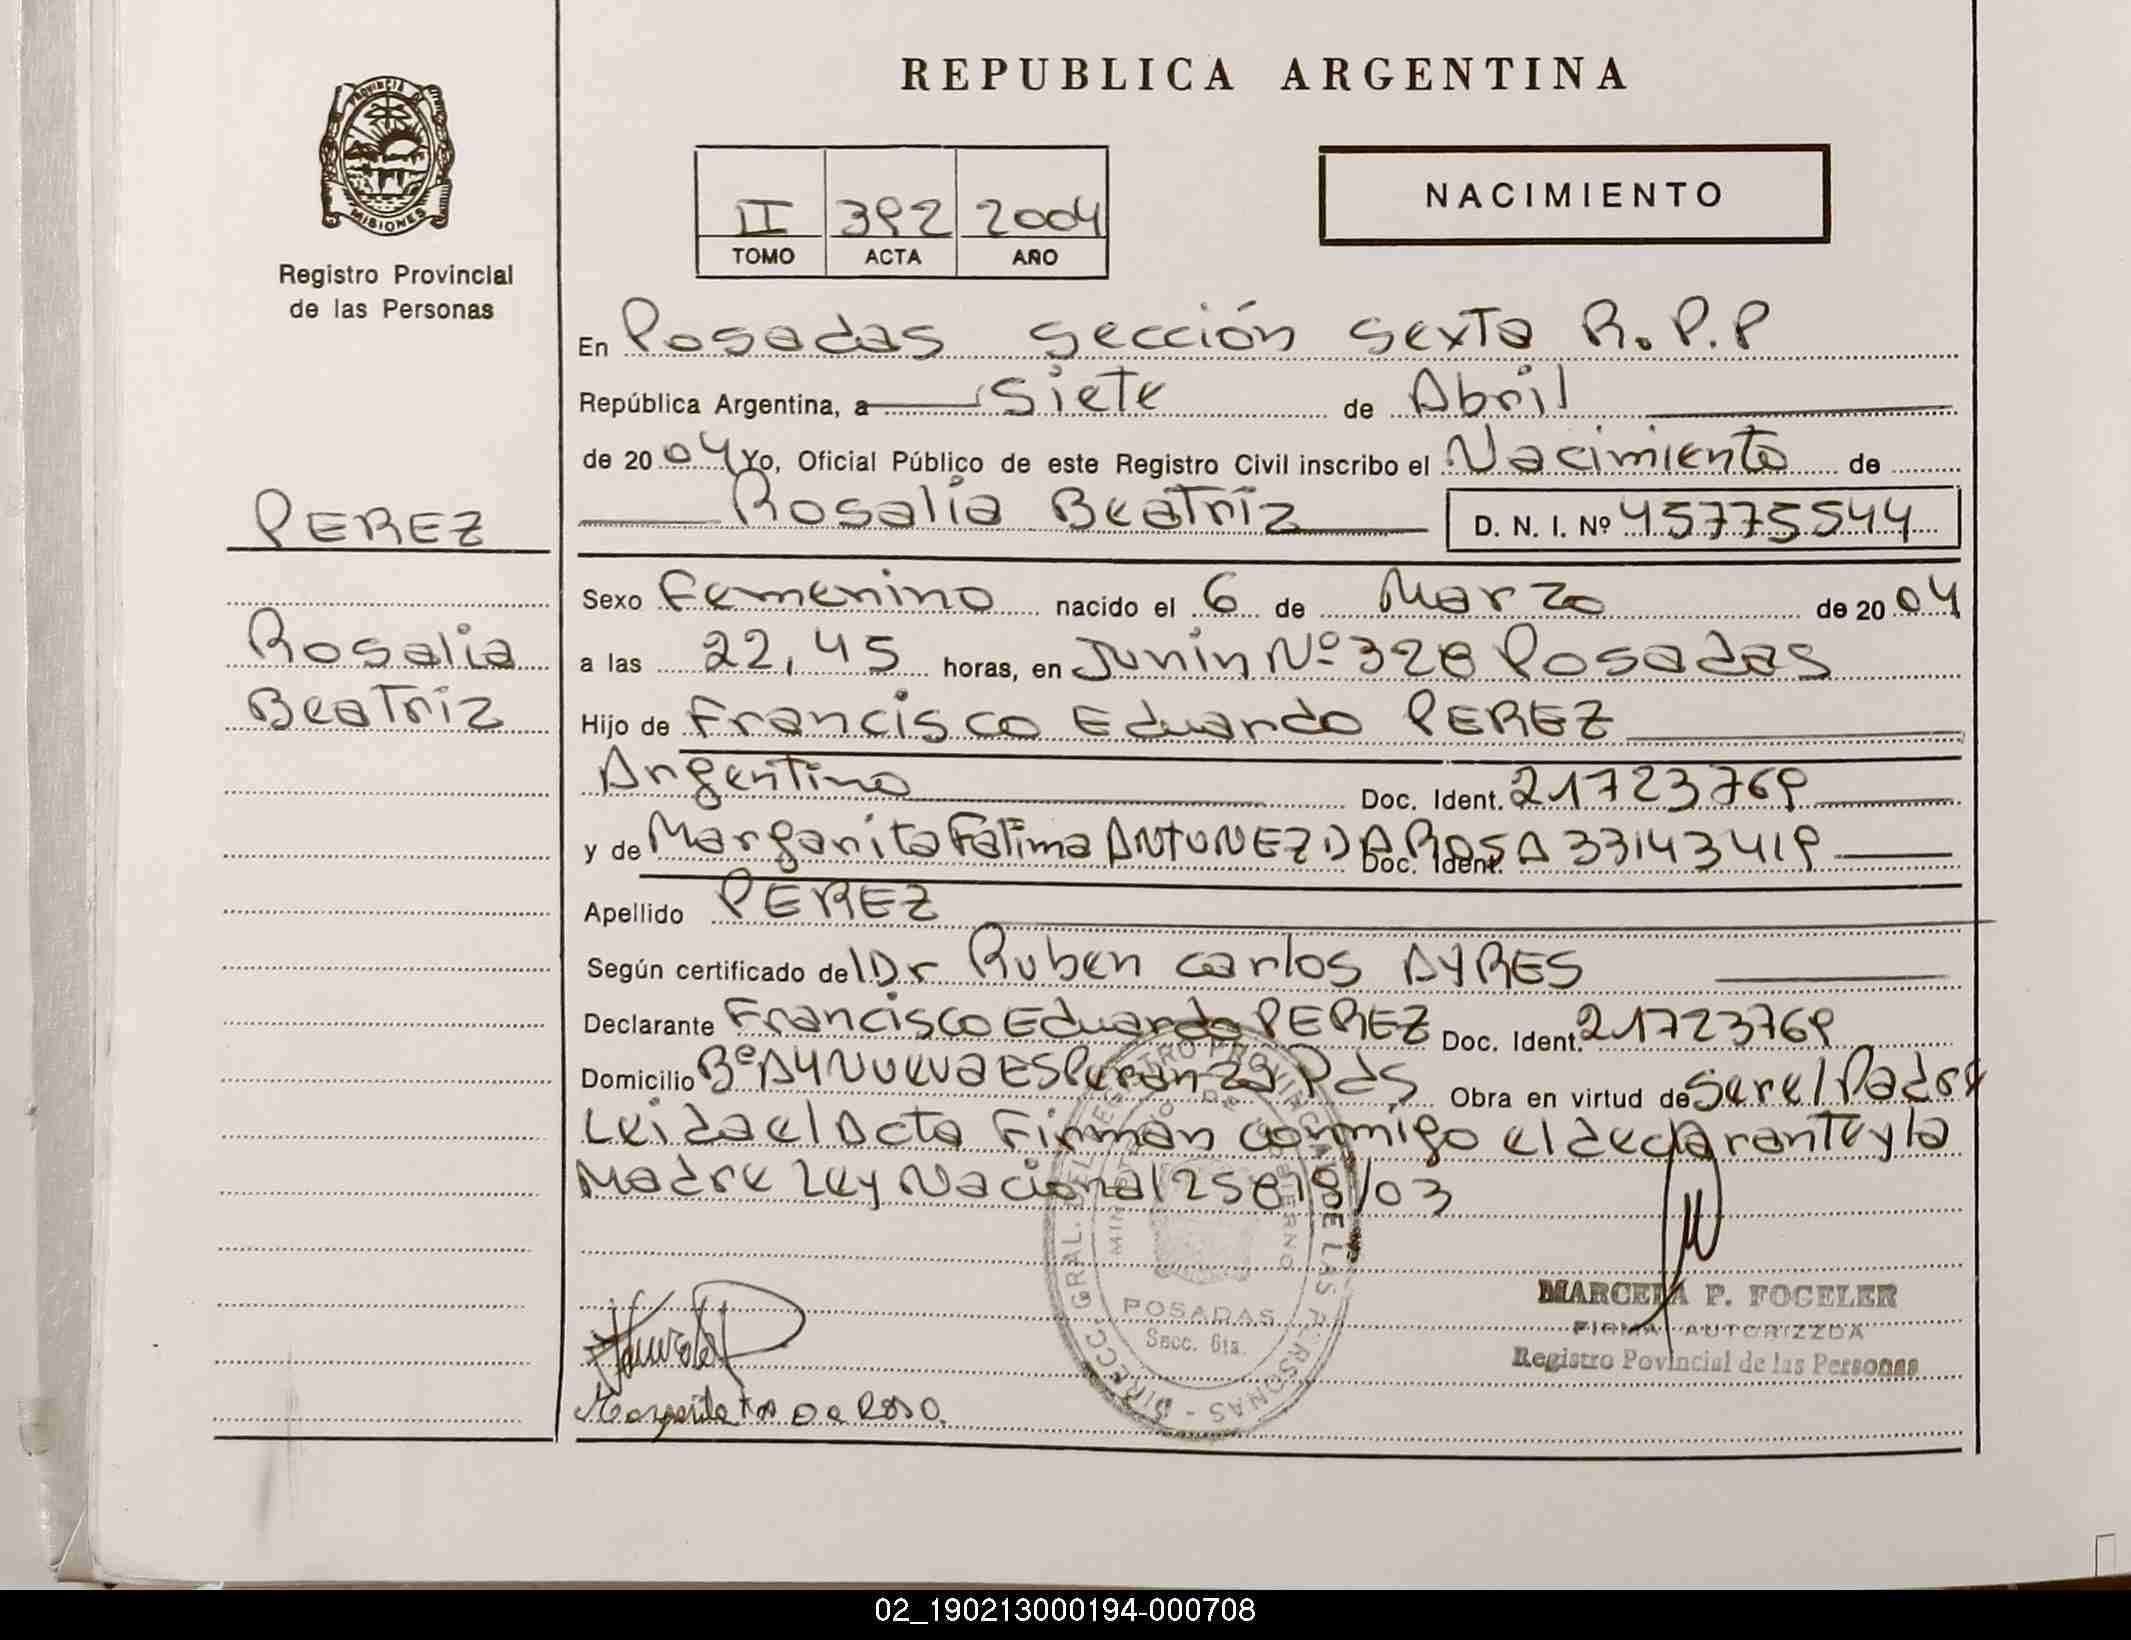 REPUBLICA ARGENTINA
PROVINCIA DE MISIONES
Registro Provincial
de las Personas
II 392 2004
TOMO ACTA AÑO
NACIMIENTO
En Posadas sección sexta R.P.P
República Argentina, a siete de Abril
de 2004 Yo, Oficial Público de este Registro Civil inscribo el Nacimiento de
Rosalia Beatriz D. N. I. Nº 45775544
PEREZ
Rosalia
Beatriz
Sexo Femenino nacido el 6 de Marzo de 2004
a las 22,45 horas, en Junin Nº 328 Posadas
Hijo de Francisco Eduardo PEREZ
Argentino Doc. Ident. 21723769
y de Margarita Fatima ANTUNEZ DA ROSA Doc. Ident. 33143419
Apellido PEREZ
Según certificado del Dr Ruben carlos AYRES
Declarante Francisco Eduardo PEREZ Doc. Ident. 21723769
Domicilio Bº A4 Nueva Esperanza Pds Obra en virtud de ser el Padre
Leida el Acta Firman conmigo el declarante y la
Madre Ley Nacional 25819/03
DIRECC. GRAL. DEL REGISTRO PROVINCIAL DE LAS PERSONAS
MINISTERIO DE GOBIERNO
POSADAS
Secc. 6ta.
MARCELA P. FOGELER
FIRMA AUTORIZZDA
Registro Povincial de las Personas
Margarita Da Roso
02_190213000194-000708